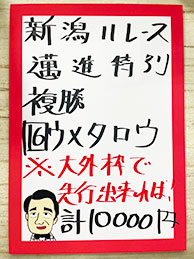 新潟11レース
邁進特別
複勝
⑯ウメタロウ
※大外枠で
先行出来れば!
計10000円